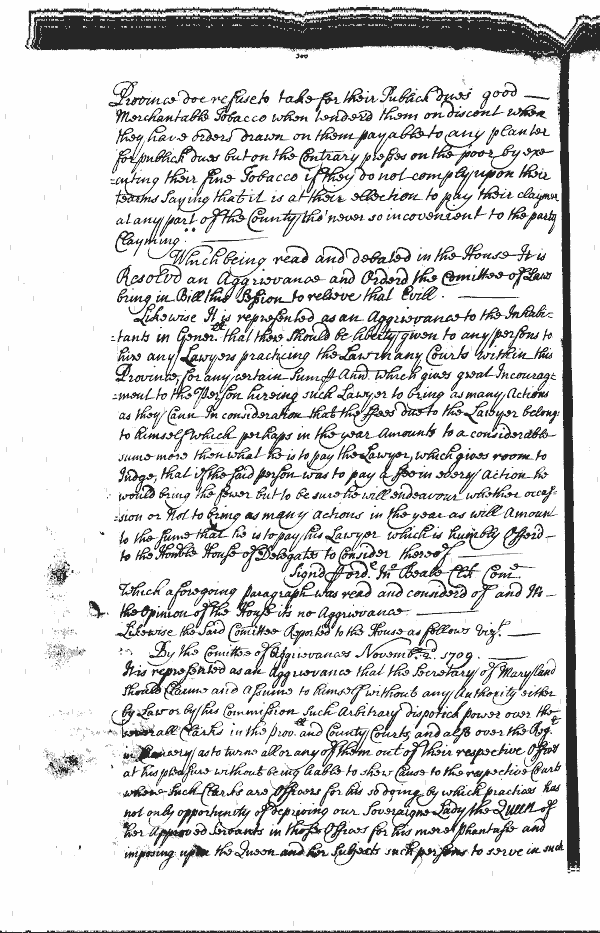 Province doe refuse to take for their Publick dues good —
Merchantable Tobacco when tenderd them on discont when
they have orders drawn on them payable to any planter
for publick dues but on the Contrary presses on the poor by exe
=cuting their fine Tobacco if they do not comply upon their
tearms Saying that it is at their ellection to pay their claymes
at any part of the County tho' never so incovenient to the party
Clayming.
Which being read and debated in the House It is
Resolvd an Aggrievance and Orderd the Comittee of Laws
bring in Bill this Session to relieve that Evill. —
Likewise It is represented as an Aggrievance to the Inhabi-
=tants in Gener.ll that there Should be liberty given to any persons to
hire any Lawyers practicing the Law in any Courts within this
Province, for any certain Sum And which gives great Incourage=
=ment to the Person hireing such Lawyer to bring as many Actions
as they Cann In consideration that the ffees due to the Lawyer belong
to himself which perhaps in the year Amounts to a considerable
sume more then what he is to pay the Lawyer, which gives room to
Judge, that if the said person was to pay a fee in every Action he
would bring the fewer but to be sure he will endeavour whether occas=
=sion or Not to bring as many Actions in the year as will Amount
to the Sume that he is to pay his Lawyer which is humbly Offerd —
to the Honble House of Delegates to Consider thereof —
Signd p ord.r Jno Beale Clk Com.e
Which aforegoing paragraph was read and considerd of and It's —
the Opinion of the House it's no Aggrievance —
Likewise the Said Comittee Reported to the House as follows vizt. —
By the Comittee of Aggrievances Novemb.r 2.d 1709.
It is represented as an Aggrievance that the Secretary of Maryland
Should Clayme and Assume to himself without any Authority either
by Law or by his Commission such Arbitrary dispotick power over the
severall Clarks in the prov.ll and County Courts, and also over the Reg.r
in Chancery, as to turne all or any of them out of their respective Offices
at his pleasure without being liable to shew Cause to the respective Courts
where Such Clarks are Officers for his so doing by which practices has
not only opportunity of depriving our Soveraigne Lady the Queen of
her Approved Servants in those Offices for his mere phantasie and
imposing upon the Queen and her Subjects such persons to serve in such